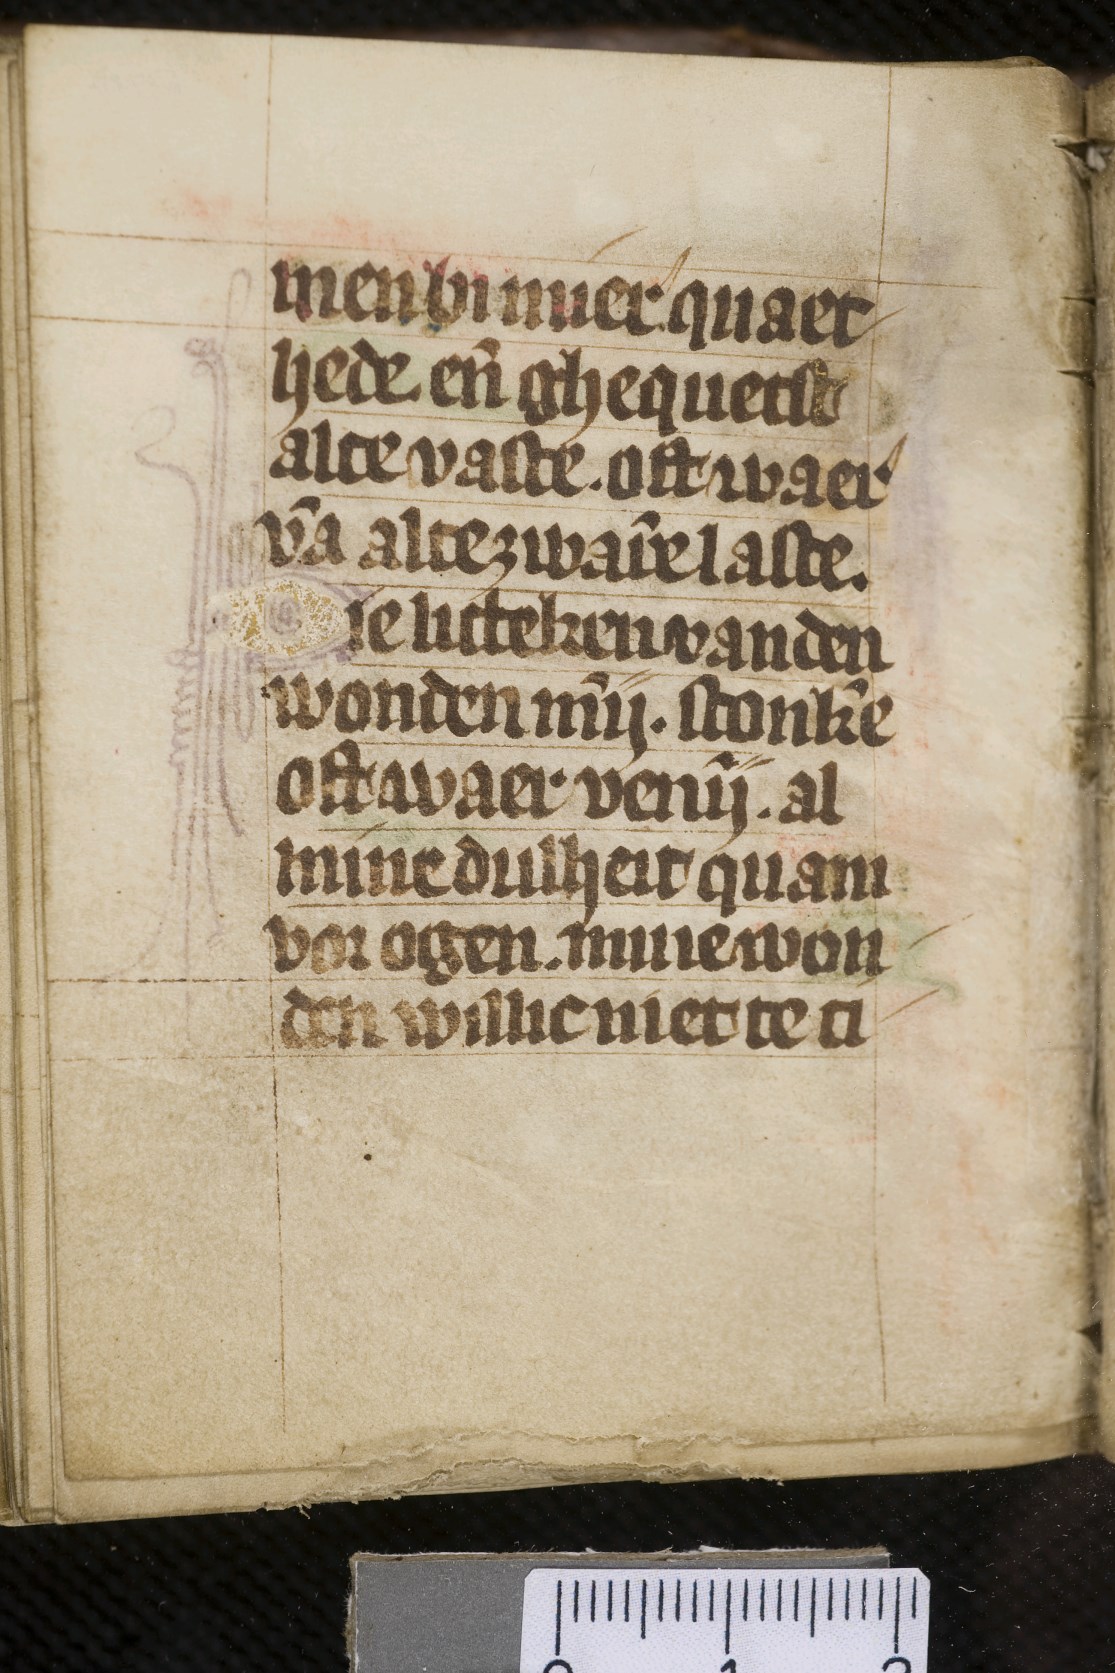 men bi miner quaet
hede. en̄ ghequetst
alte vaste. oft waer
vā alte zwar̄e laste.
ie litteken van den
wonden mīj. stonkē
oft waer venīj. al
mine dulheit quam
vor ogen. mine won
den willic niet te ti
0 1 2